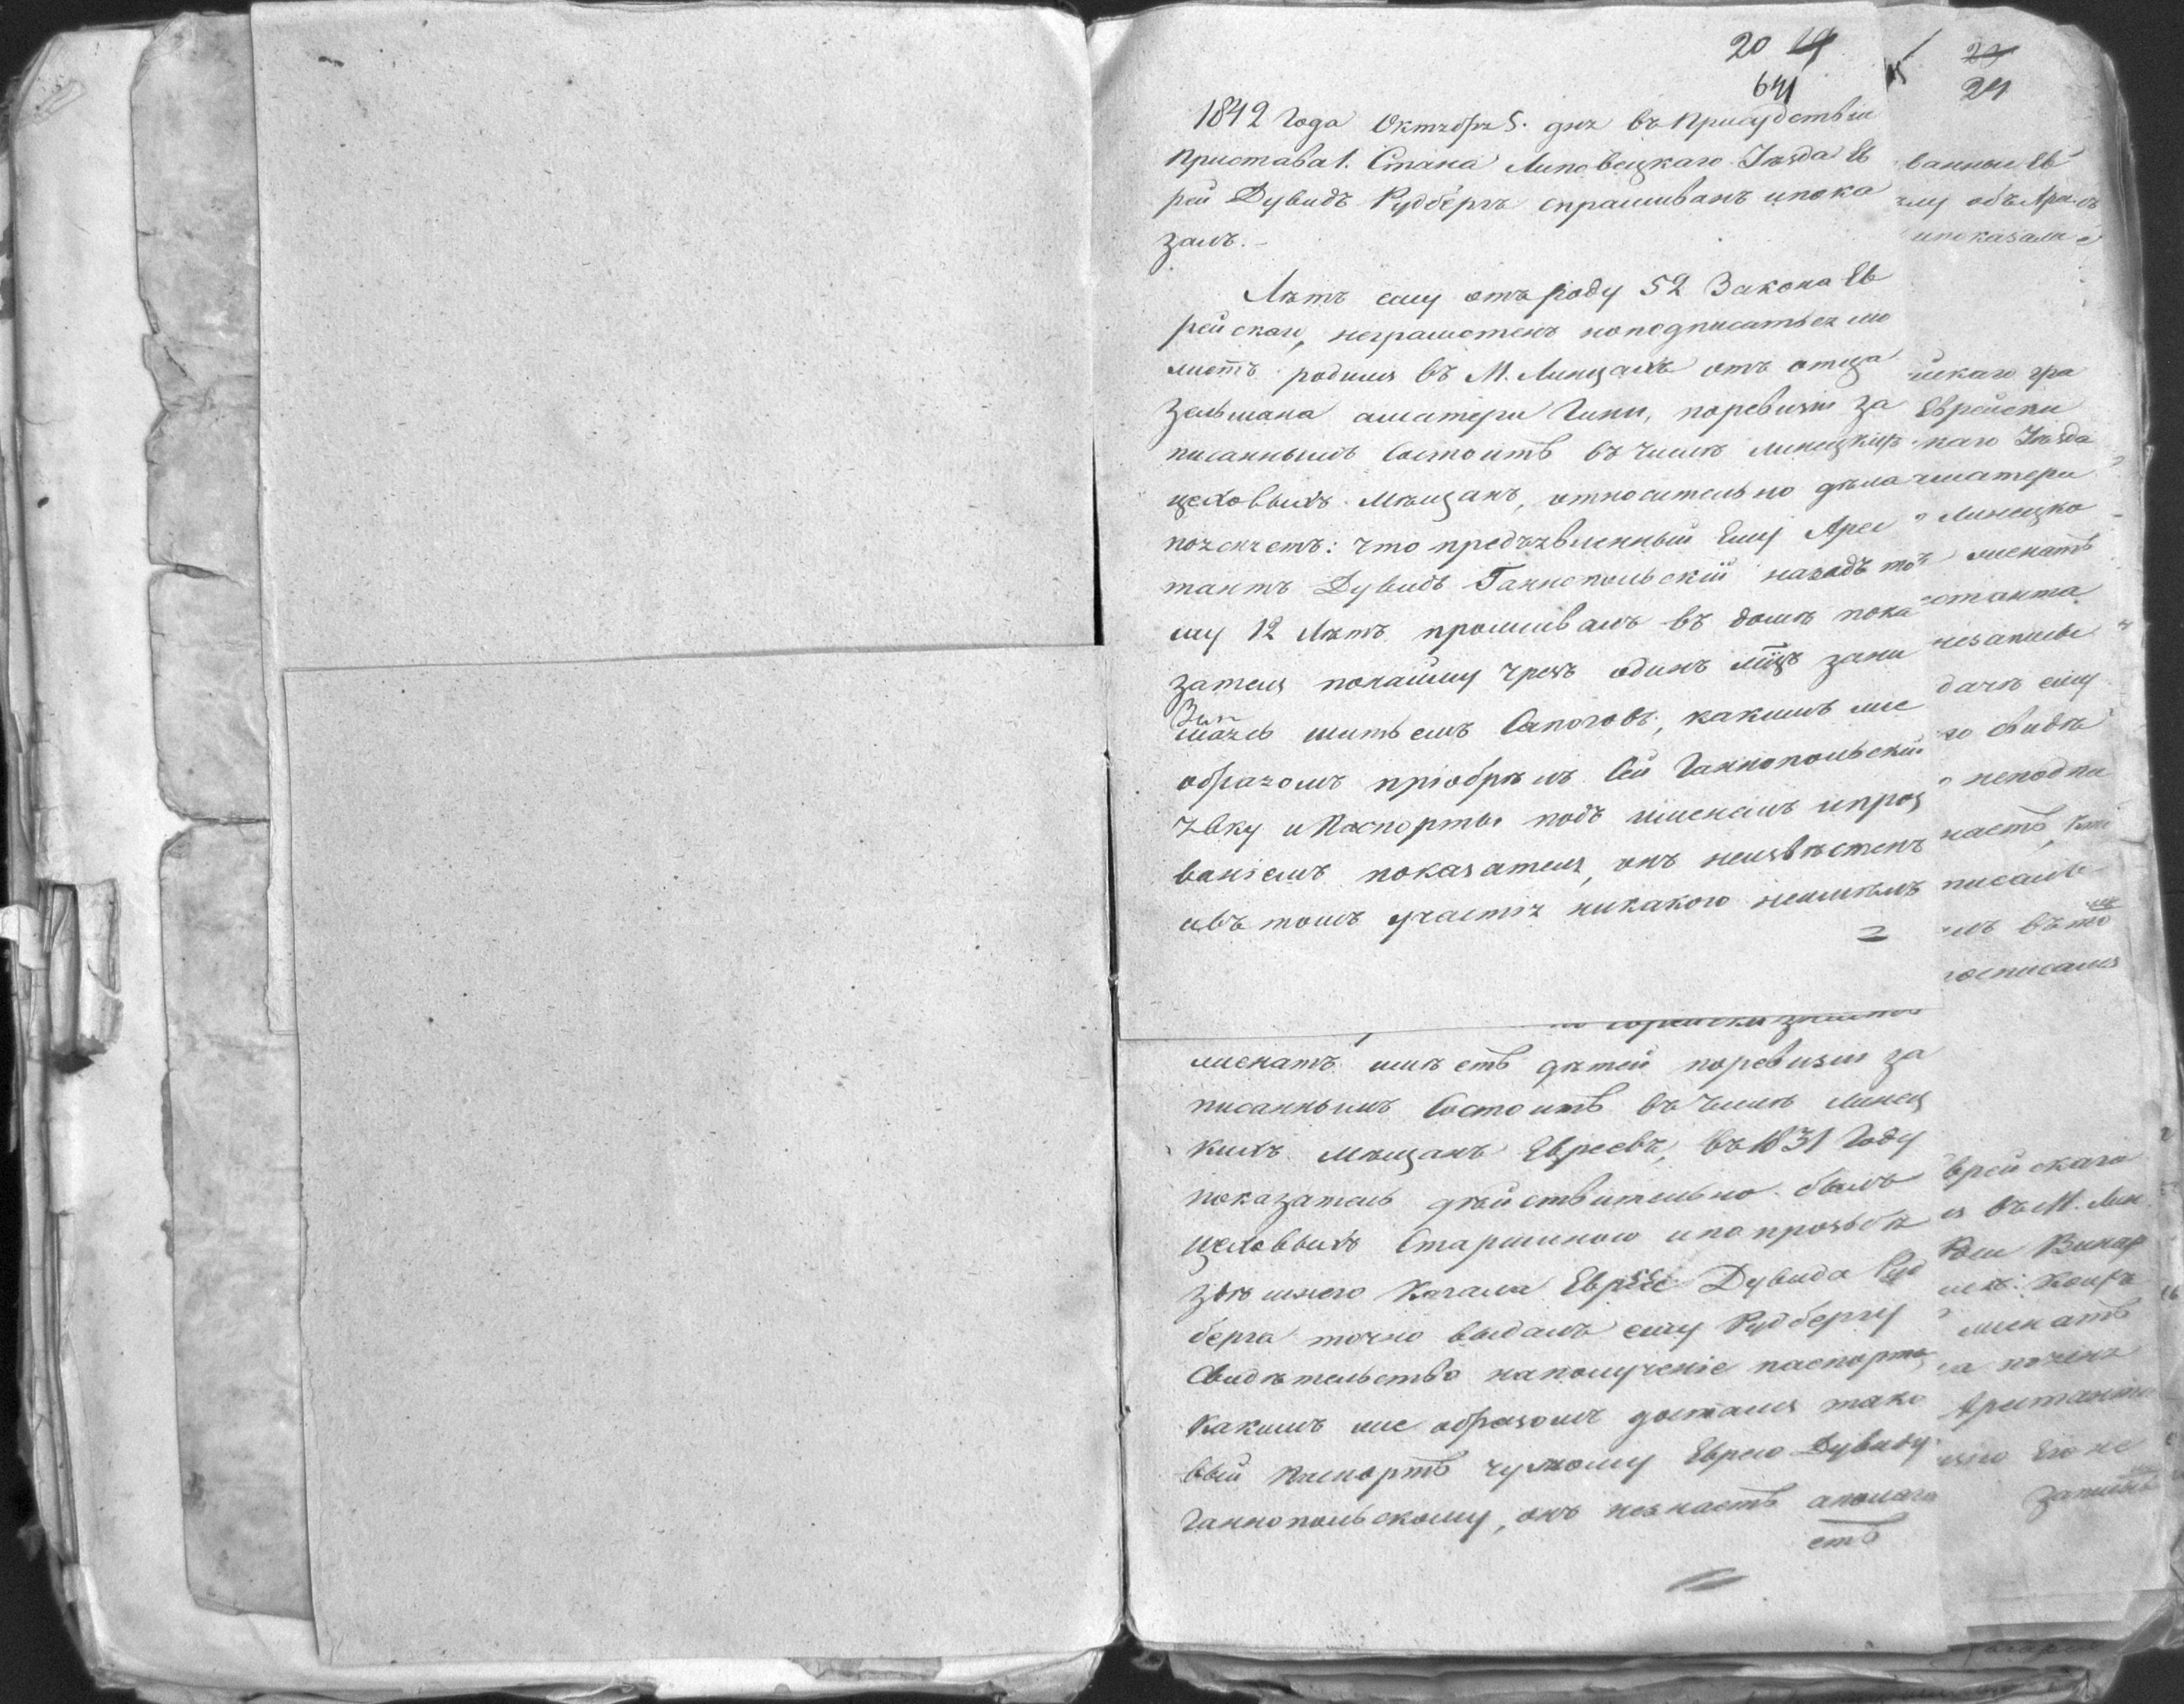 20 19
641
1842 Года Октября 5. дня въ Присудствіи
Пристава 1. Стана Липовецкаго Уѣзда Ев
рей Дувидъ Рудбергъ спрашиванъ и пока
залъ. –
Лѣтъ ему отъ роду 52 Закона Ев
рейскаго, неграмотенъ но подписаться мо
жетъ родился въ М. Линцахъ отъ отца
Зельмана а матери Гини, по ревизіи за
писаннымъ состоитъ въ числѣ Линецкихъ
цеховыхъ Мѣщанъ, относительно дѣла
поясняетъ: что предъявленный ему Арес
тантъ Дувидъ Ганнопольскій назадъ то
му 12 Лѣтъ проживалъ въ домѣ пока
зателя по найму чрезъ одинъ м͠цъ зани
маясь шитьемъ Сапоговъ, какимъ же
образомъ пріобрѣлъ сей Ганнопольскій
явку и Паспорты подъ именемъ и проз
ваніемъ показателя, онъ неизвѣстенъ
и въ томъ участія никакого неимѣлъ
женатъ имѣетъ дѣтей по ревизіи за
писаннымъ Состоитъ въ Числѣ Линец
кихъ Мѣщанъ Евреевъ, въ 1831 Году
показатель дѣйствительно былъ
цеховыхъ Старшиною и по прозьбѣ
здѣшнего Кагала Еврея Дувида Руд
берга точно выдалъ ему Рудбергу
Свидѣтельство на полученіе паспорта,
Какимъ же образомъ достался тако
вый паспортъ чужому Еврею Дувиду
Ганнопольскому, онъ незнаетъ а полага
етъ
23
24
ванные Ев
и показали
Еврейски
каго Уѣзда
а матери
Линецко
женатъ
дачѣ ему
свидѣ
неподпи
наетъ,
въ то
врейскаго
въ М. Лин
женатъ
Арестанта
Его не